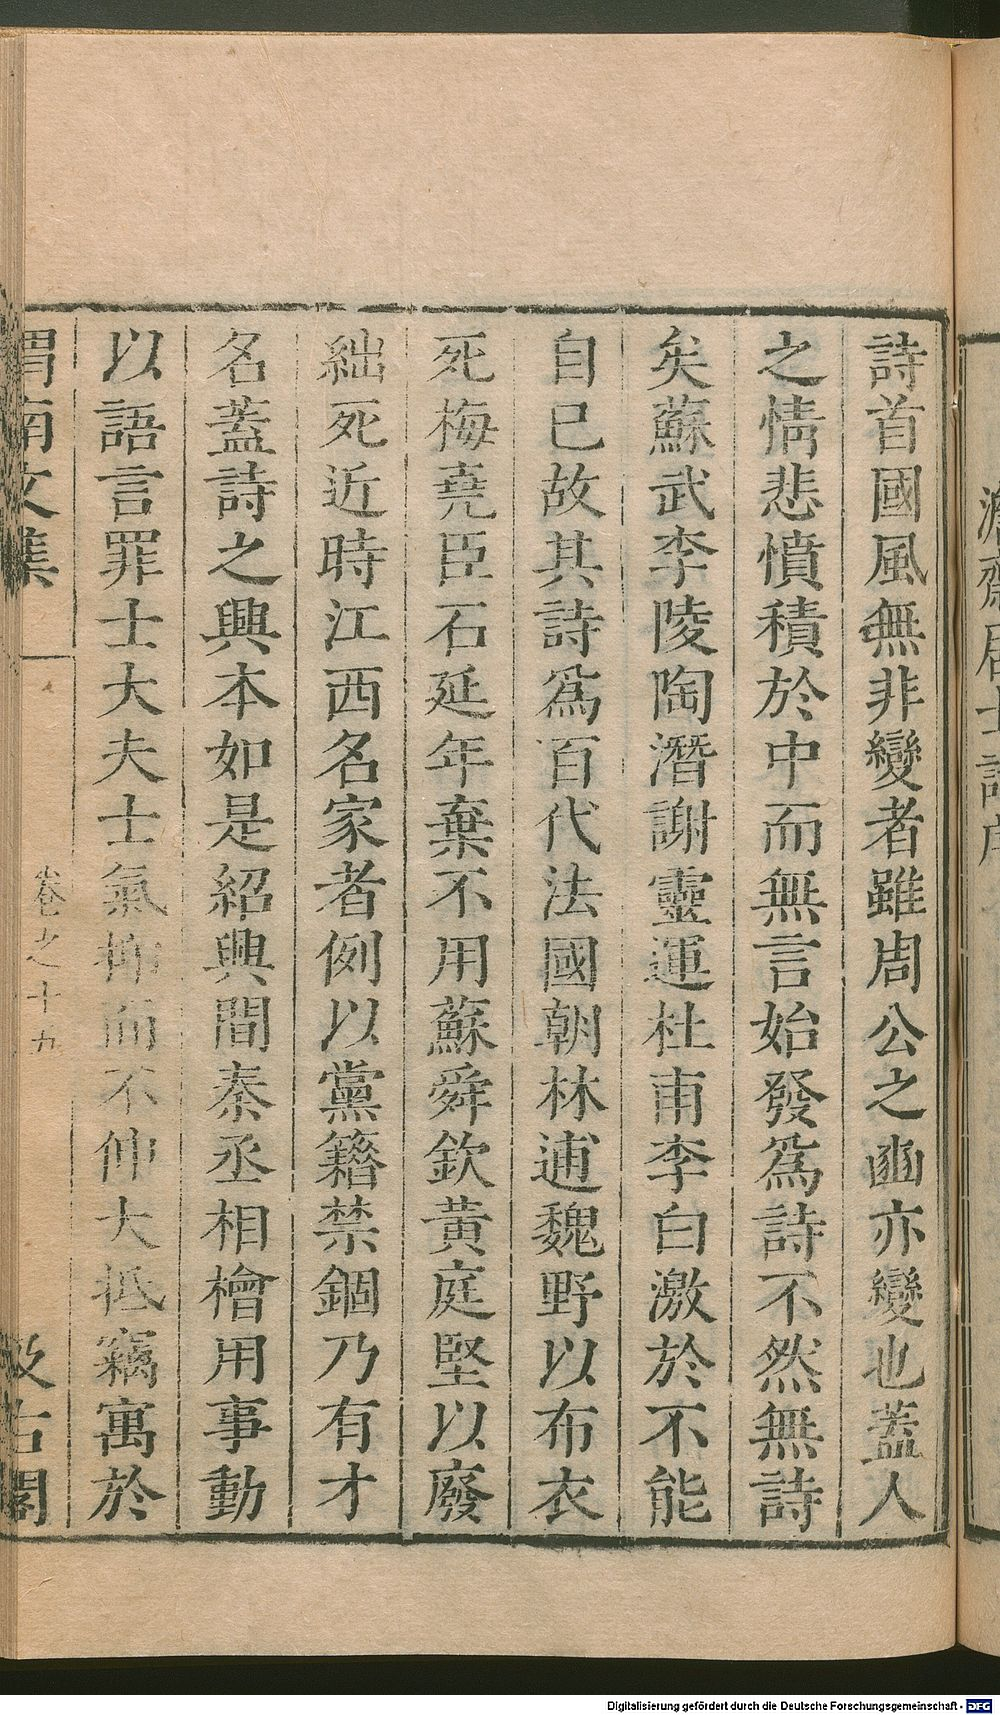 詩首國風無非變者雖周公之豳亦變也蓋人
之情悲憤積於中而無言始發爲詩不然無詩
矣蘇武李陵陶潛謝靈運杜甫李白激於不能
自已故其詩爲百代法國朝林逋魏野以布衣
死梅堯臣石延年棄不用蘇舜欽黃庭堅以廢
絀死近時江西名家者例以黨籍禁錮乃有才
名蓋詩之興本如是紹興間秦丞相檜用事動
以語言罪士大夫士氣抑而不伸大抵竊寓於
渭南文集 卷之十九 汲古閣
Digitalisierung gefördert durch die Deutsche Forschungsgemeinschaft - DFG